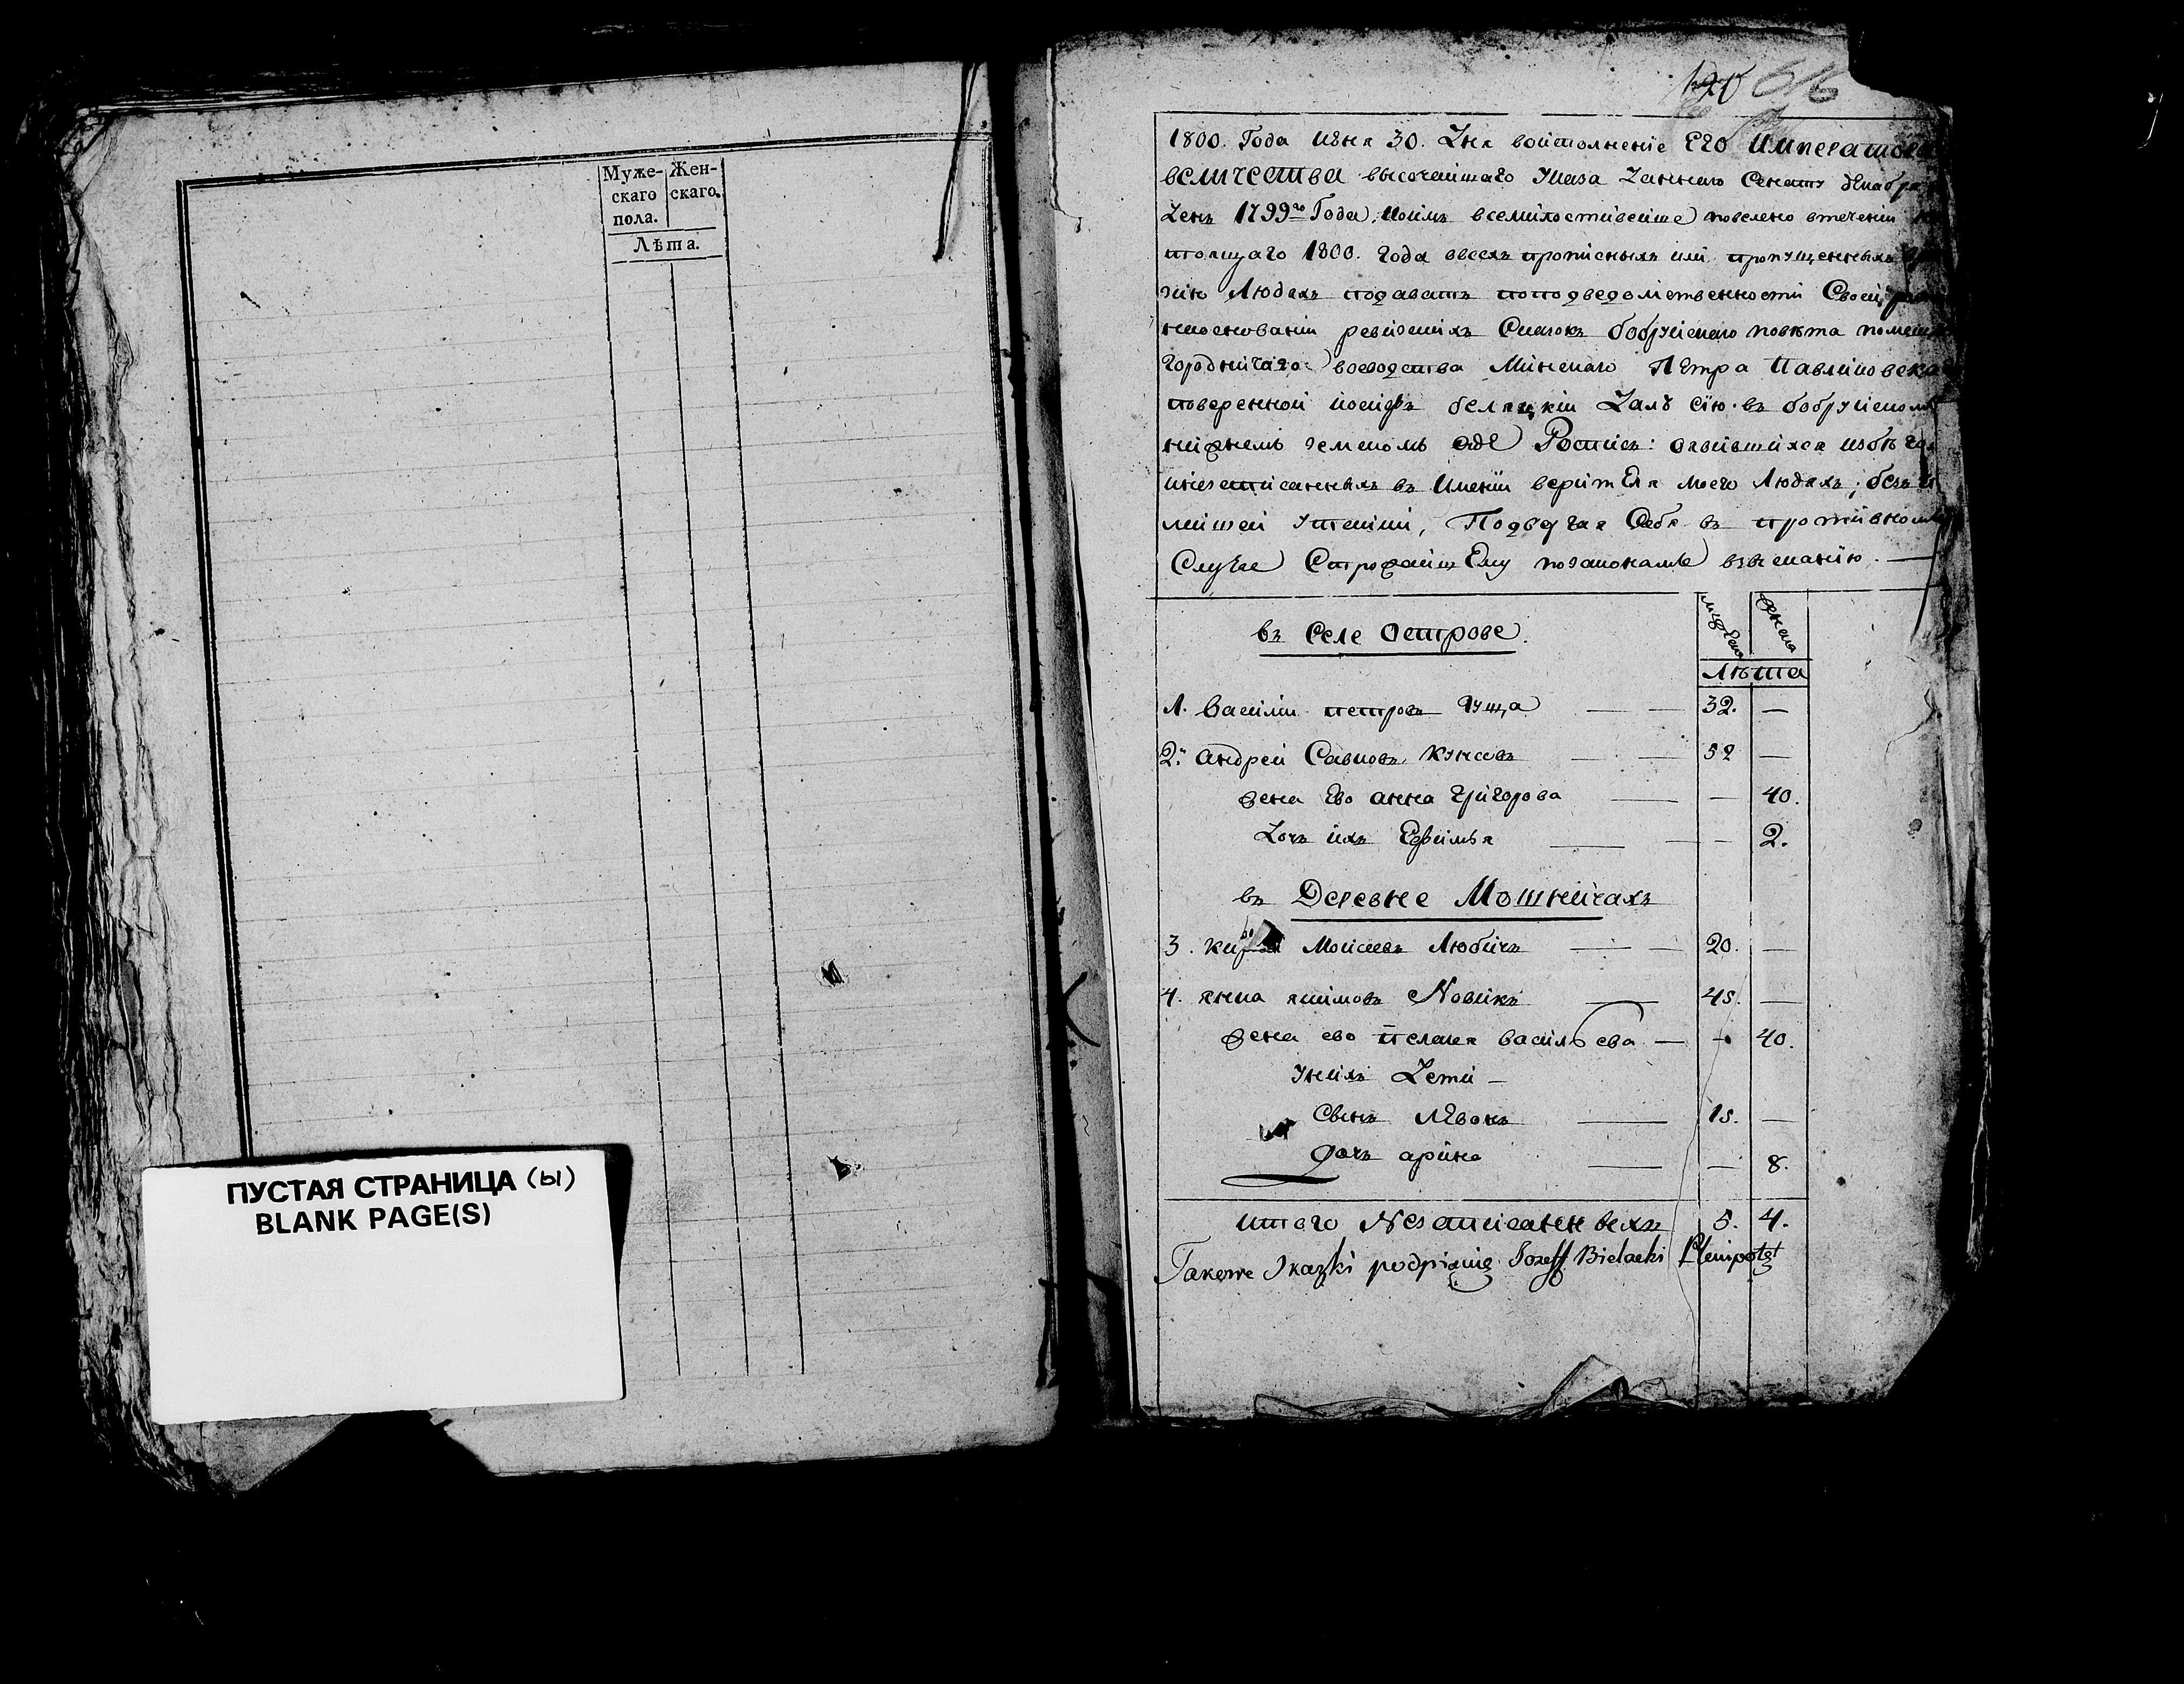 Муже-
скаго
пола.
Жен-
скаго.
Лѣта.
ПУСТАЯ СТРАНИЦА (ы)
BLANK PAGE(S)
1800. Года июня 30. Дня воисполнение Его Императорс
величества высочаишаго указа даннаго Сенату декабря
день 1799го Года, коимъ всемилостивеише повелено втечении
стоящаго 1800. года овсехъ прописныхъ или пропущенныхъ
зию Людехъ подавать поподведомственности Своеи
наоснованiи ревизскихъ Сказокъ бобруискаго повѣта помещ
городничаго воеводства Минскаго Петра Павликовска
поверенной иосифъ беляцкiи далъ сiю въ бобруиском
нижнемъ земскомъ суде Роспись: оявившихся избѣго
инезаписанныхъ въ имении верителя моего Людяхъ, безъ
меишеи утаики, Подвергая Себя въ противномъ
Случае Строжаишему позаконамъ взысканiю.
въ Селе Острове.
мужеска
женска
Лѣта
1. Василiи петровъ Гуща 32. —
2. андреи Савковъ Кунсевъ 52 —
жена Ево анна григорова — 40.
Дочь ихъ Ефимья — 2.
въ Деревне Мошничахъ
3. Моисеевъ Любичъ 20. —
4. янка якимовъ Новикъ 45. —
жена ево пелагея васильева — 40.
Унихъ Дети —
Сынъ Левонъ 15. —
дочь арина — 8.
итого Незаписанныхъ 5. 4.
Takowe Skazki podpisuię Jozeff Bielacki Plenipotet